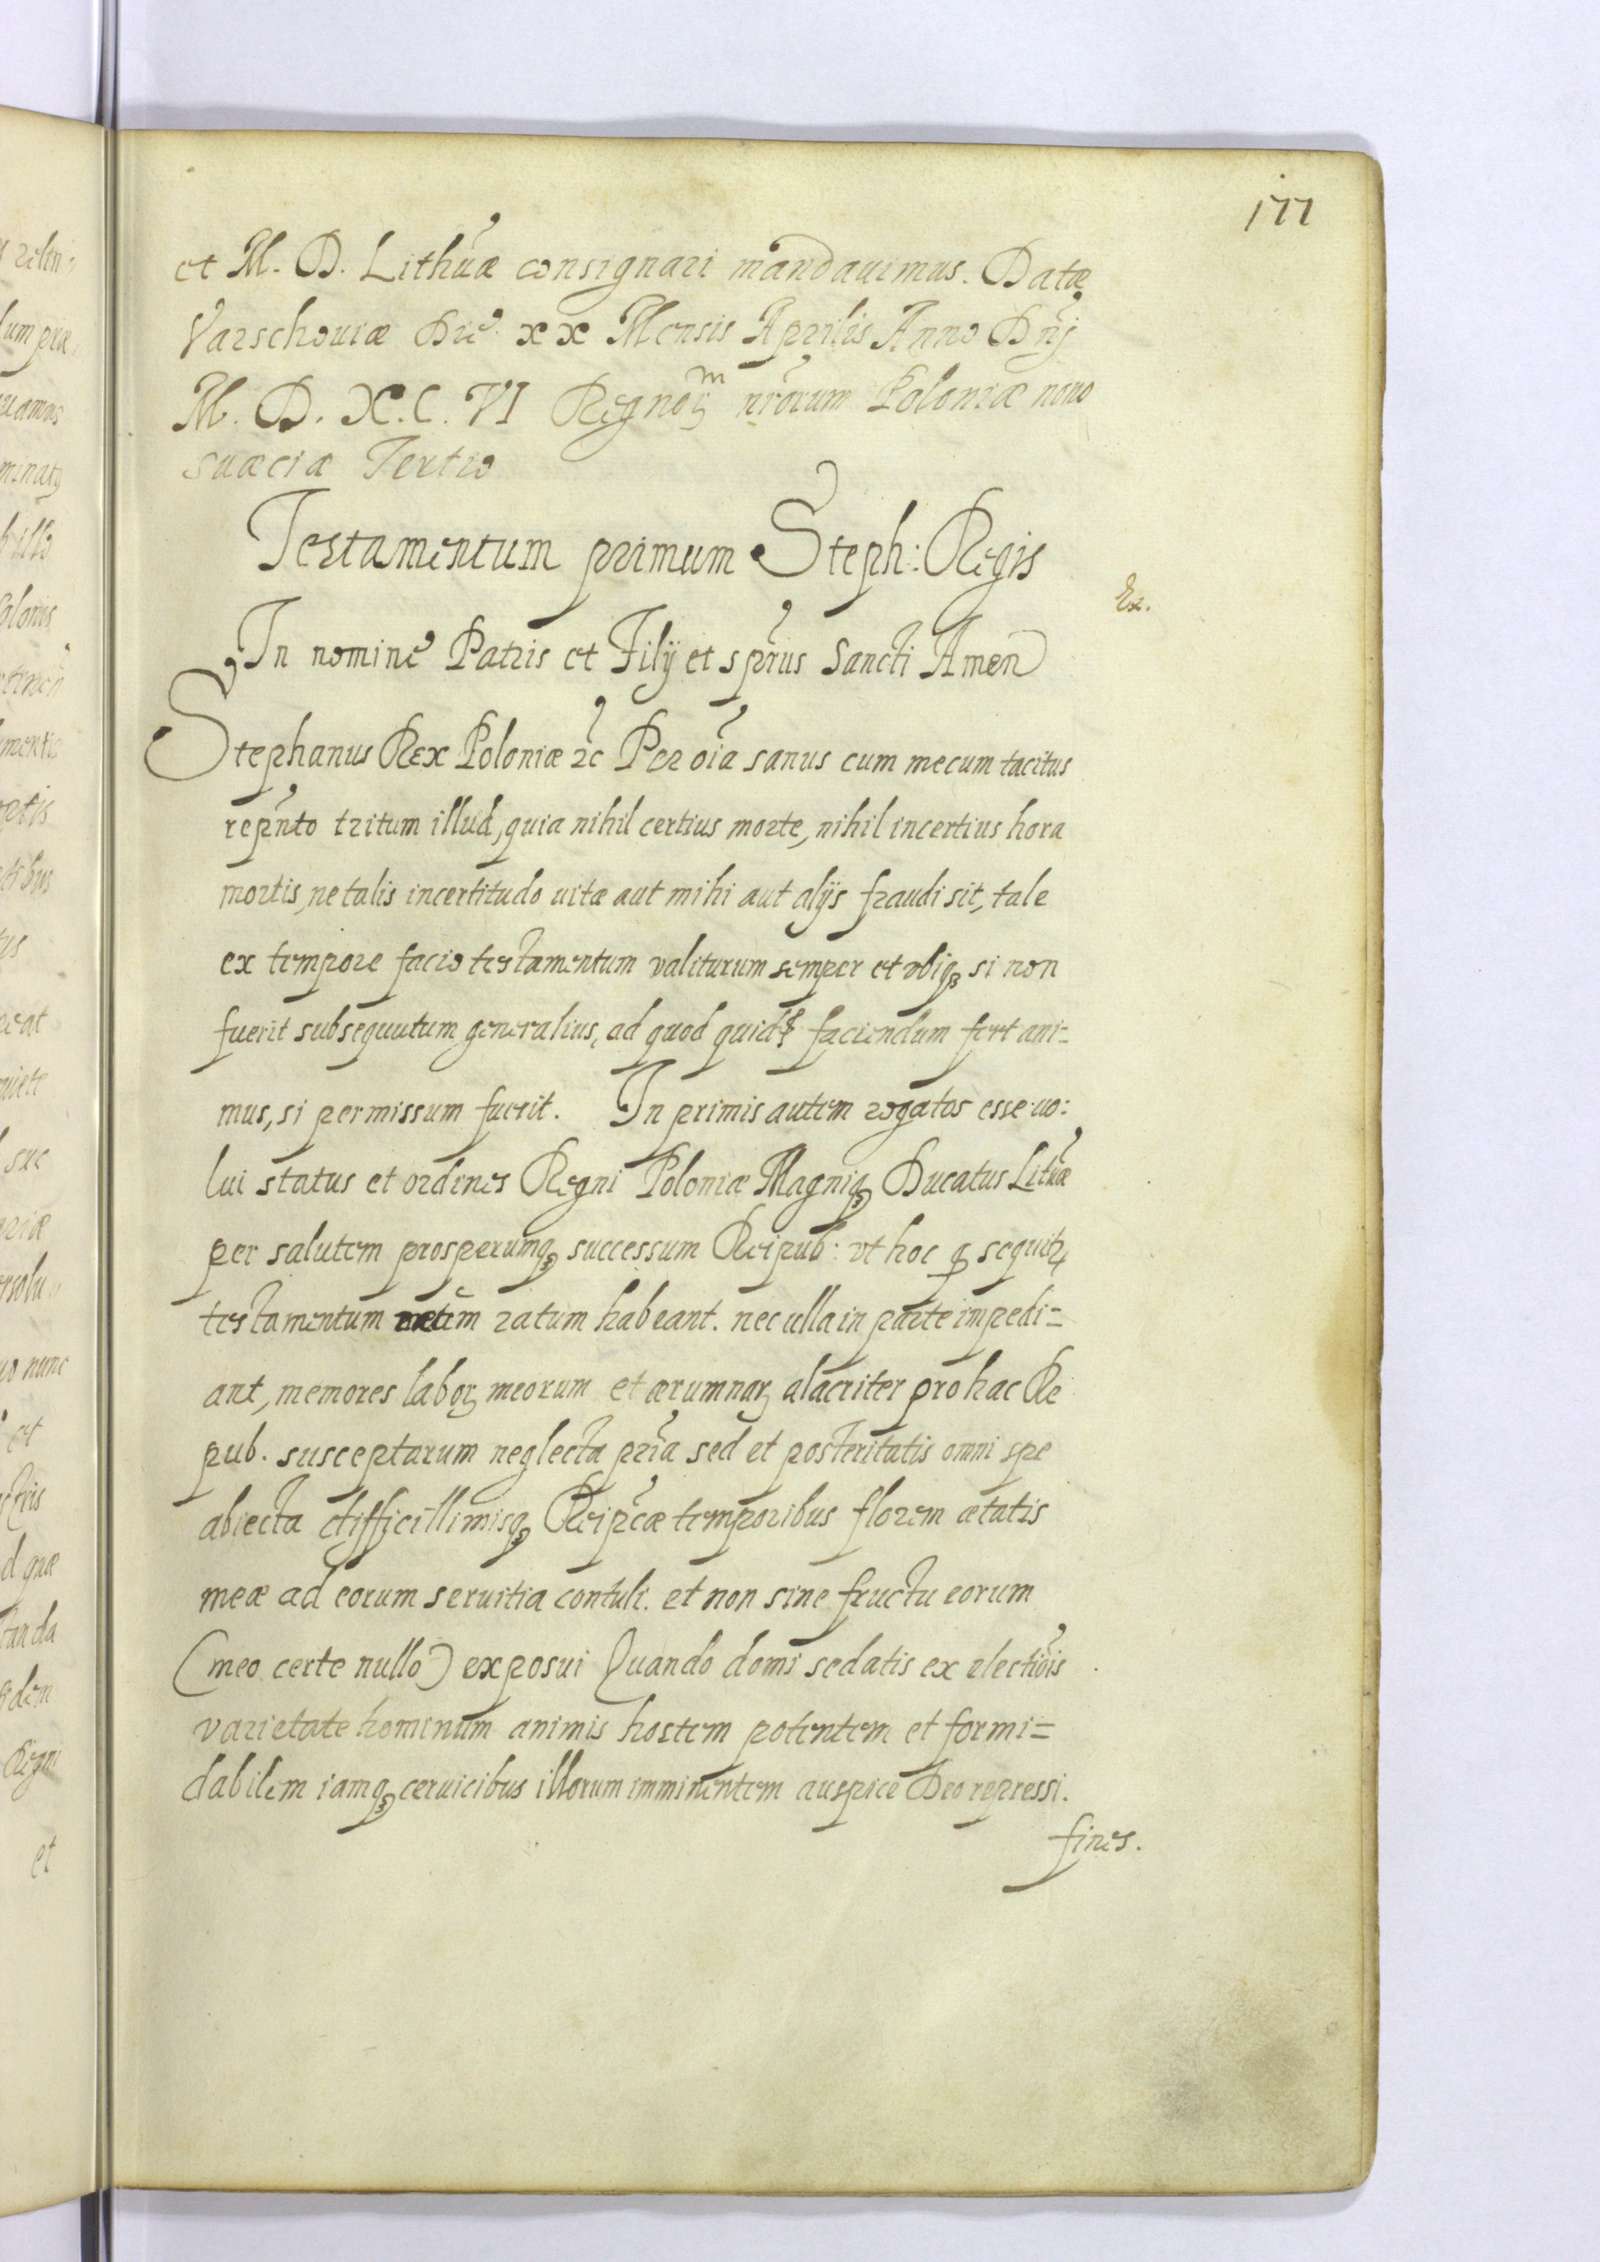 177
et M. D. Lithũæ consignari mandauimus. Datæ
Varschouiæ Die xx Mensis Aprilis Anno Dn̄j
M. D. X.C. VI Regnoꝝ nr̄orum Poloniæ nono
suæciæ Tertio
Testamentum primum Steph: Regis
In nomine Patris et Filij et sp̄rius Sancti Amen
Stephanus REx Poloniæ ꝛc̄ Per oi͞a sanus cum mecum tacitus
rep̄nto tritum illud, quia nihil certius morte, nihil incertius hora
mortis, ne talis incertitudo uitæ aut mihi aut alijs fraudi sit, tale
ex tempore facio testamentum valiturum semper et vbiqꝫ si non
fuerit subsequutum generalius, ad quod quid faciendum fert ani=
mus, si permissum fuerit. In primis autem rogatos esse uo:
lui status et ordines Regni Poloniæ Magniqꝫ Ducatus Lit̄uæ
per salutem prosperumqꝫ successum Reipub: vt hoc ꝙ sequitꝛ
testamentum ratum habeant. nec ulla in parte impedi=
ant, memores laboꝝ meorum et ærumnaꝝ alacriter pro hac Re
pub. susceptarum neglecta pr̄ia sed et posteritatis omni spe
abiecta difficillimisqꝫ Reip̄cæ temporibus florem ætatis
meæ ad eorum seruitia contuli. et non sine fructu eorum
(meo certe nullo) exposui Quando domi sedatis ex electiōis
varietate hominum animis hostem potentem et formi=
dabilem iamqꝫ ceruicibus illorum imminentem auspice Deo repressi.
fines.
et